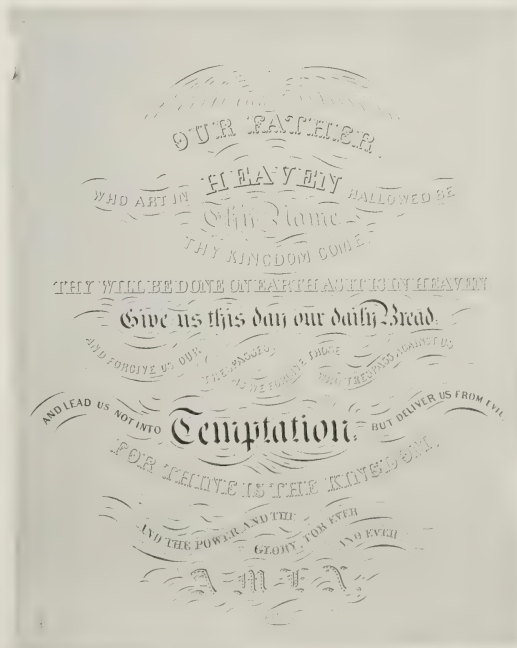 OUR FATHER
WHO ART IN HEAVEN HALLOWED BE
Thy Name
THY KINGDOM COME.
THY WILL BE DONE ON EARTH AS IT IS IN HEAVEN
Give us this day our daily Bread,
AND FORGIVE US OUR TRESPASSES
AS WE FORGIVE THOSE WHO TRESPASS AGAINST US
AND LEAD US NOT INTO Temptation, BUT DELIVER US FROM EVIL
FOR THINE IS THE KINGDOM,
AND THE POWER AND THE
GLORY, FOR EVER
AND EVER
AMEN.